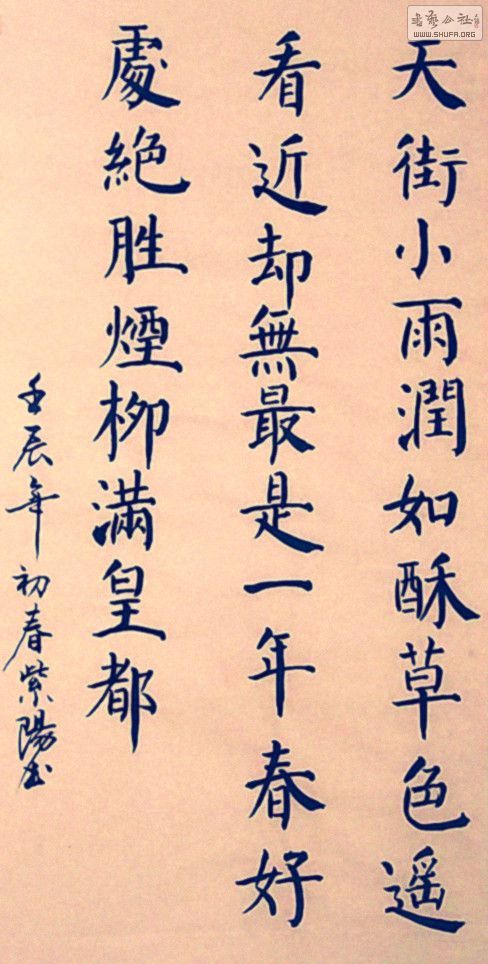 天街小雨潤如酥草色遥
看近却無最是一年春好
處絶胜煙柳滿皇都
壬辰年初春紫陽书
書藝公社
WWW.SHUFA.ORG